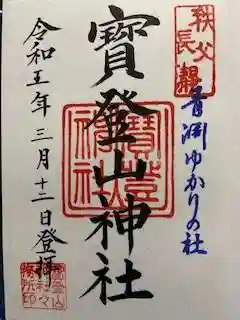 秩父
長瀞
青淵ゆかりの社
寳登山神社
令和五年三月十二日登拝